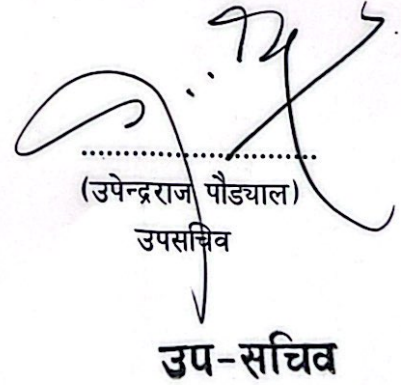 ..............................
(उपेन्द्रराज पौड्याल)
उपसचिव
उप-सचिव